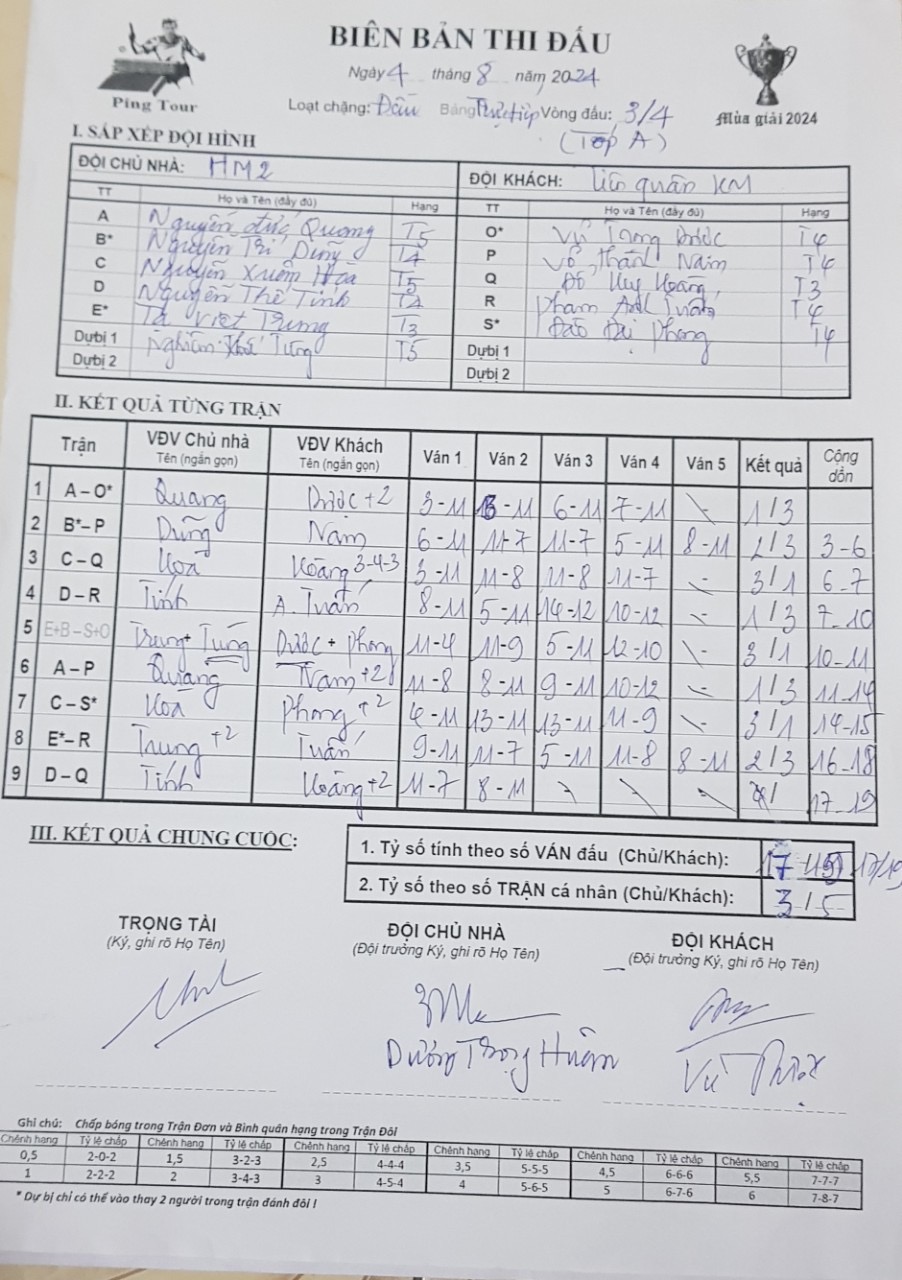 BIÊN BẢN THI ĐẤU
Ngày 4 tháng 8 năm 2024
Ping Tour
Loạt chặng: Đấu Bảng Trực tiếp Vòng đấu: 3/4
(Top A)
Mùa giải 2024
I. SẮP XẾP ĐỘI HÌNH
ĐỘI CHỦ NHÀ: HM2 ĐỘI KHÁCH: Liên quân KM
TT Họ và Tên (đầy đủ) Hạng TT Họ và Tên (đầy đủ) Hạng
A Nguyễn Đức Quang T5 O* Vũ Trọng Được T4
B* Nguyễn Trí Dũng T4 P Võ Thành Nam T4
C Nguyễn Xuân Hoa T5 Q Đỗ Huy Hoàng T3
D Nguyễn Thế Tính T4 R Phạm Anh Tuấn T4
E* Tạ Việt Trung T3 S* Đào Đại Phong T4
Dự bị 1 Nghiêm Tùng T5 Dự bị 1
Dự bị 2 Dự bị 2
II. KẾT QUẢ TỪNG TRẬN
Trận VĐV Chủ nhà Tên (ngắn gọn) VĐV Khách Tên (ngắn gọn) Ván 1 Ván 2 Ván 3 Ván 4 Ván 5 Kết quả Cộng dồn
1 A – O* Quang Được +2 3-11 13-11 6-11 7-11 \- 1 / 3
2 B* – P Dũng Nam 6-11 11-7 11-7 5-11 8-11 2 / 3 3-6
3 C – Q Hoà Hoàng 3-4-3 3-11 11-8 11-8 11-7 \- 3 / 1 6-7
4 D – R Tính A. Tuấn 8-11 5-11 14-12 10-12 \- 1 / 3 7-10
5 E+B – S+O Trung + Tùng Được + Phong 11-4 11-9 5-11 12-10 \- 3 / 1 10-11
6 A – P Quang Nam +2 11-8 8-11 9-11 10-12 \- 1 / 3 11-14
7 C – S* Hoà Phong +2 4-11 13-11 13-11 11-9 \- 3 / 1 14-15
8 E* – R Trung +2 Tuấn 9-11 11-7 5-11 11-8 8-11 2 / 3 16-18
9 D – Q Tính Hoàng +2 11-7 8-11 \ \ \ / 17-19
III. KẾT QUẢ CHUNG CUỘC:
1. Tỷ số tính theo số VÁN đấu (Chủ/Khách): 17 17/19
2. Tỷ số theo số TRẬN cá nhân (Chủ/Khách): 3 / 5
TRỌNG TÀI ĐỘI CHỦ NHÀ ĐỘI KHÁCH
(Ký, ghi rõ Họ Tên) (Đội trưởng Ký, ghi rõ Họ Tên) (Đội trưởng Ký, ghi rõ Họ Tên)
Dương Trọng Huân Vũ
Ghi chú: Chấp bóng trong Trận Đơn và Bình quân hạng trong Trận Đôi
Chênh hạng Tỷ lệ chấp Chênh hạng Tỷ lệ chấp Chênh hạng Tỷ lệ chấp Chênh hạng Tỷ lệ chấp Chênh hạng Tỷ lệ chấp Chênh hạng Tỷ lệ chấp
0,5 2-0-2 1,5 3-2-3 2,5 4-4-4 3,5 5-5-5 4,5 6-6-6 5,5 7-7-7
1 2-2-2 2 3-4-3 3 4-5-4 4 5-6-5 5 6-7-6 6 7-8-7
* Dự bị chỉ có thể vào thay 2 người trong trận đánh đôi !